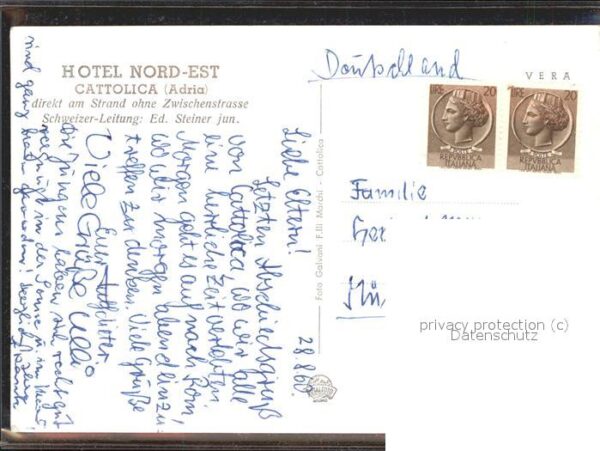 HOTEL NORD-EST
CATTOLICA (Adria)
direkt am Strand ohne Zwischenstrasse
Schweizer-Leitung: Ed. Steiner jun.
28.8.60.
Liebe Eltern!
Letzten Abschiedsgruß
von Cattolica, wo wir alle
eine herrliche Zeit verlebten.
Morgen geht es auf nach Rom
wo wir morgen abend einzu-
treffen zu denken. Viele Grüße
Euer
Viele Grüße
Die Jungens haben sich recht gut
in der Sonne
sind ganz
Foto Galvani F.lli Marchi - Cattolica
Deutschland
VERA
LIRE 20
REPUBBLICA
ITALIANA
LIRE 20
REPUBBLICA
ITALIANA
Familie
Her
Mü
privacy protection (c)
Datenschutz